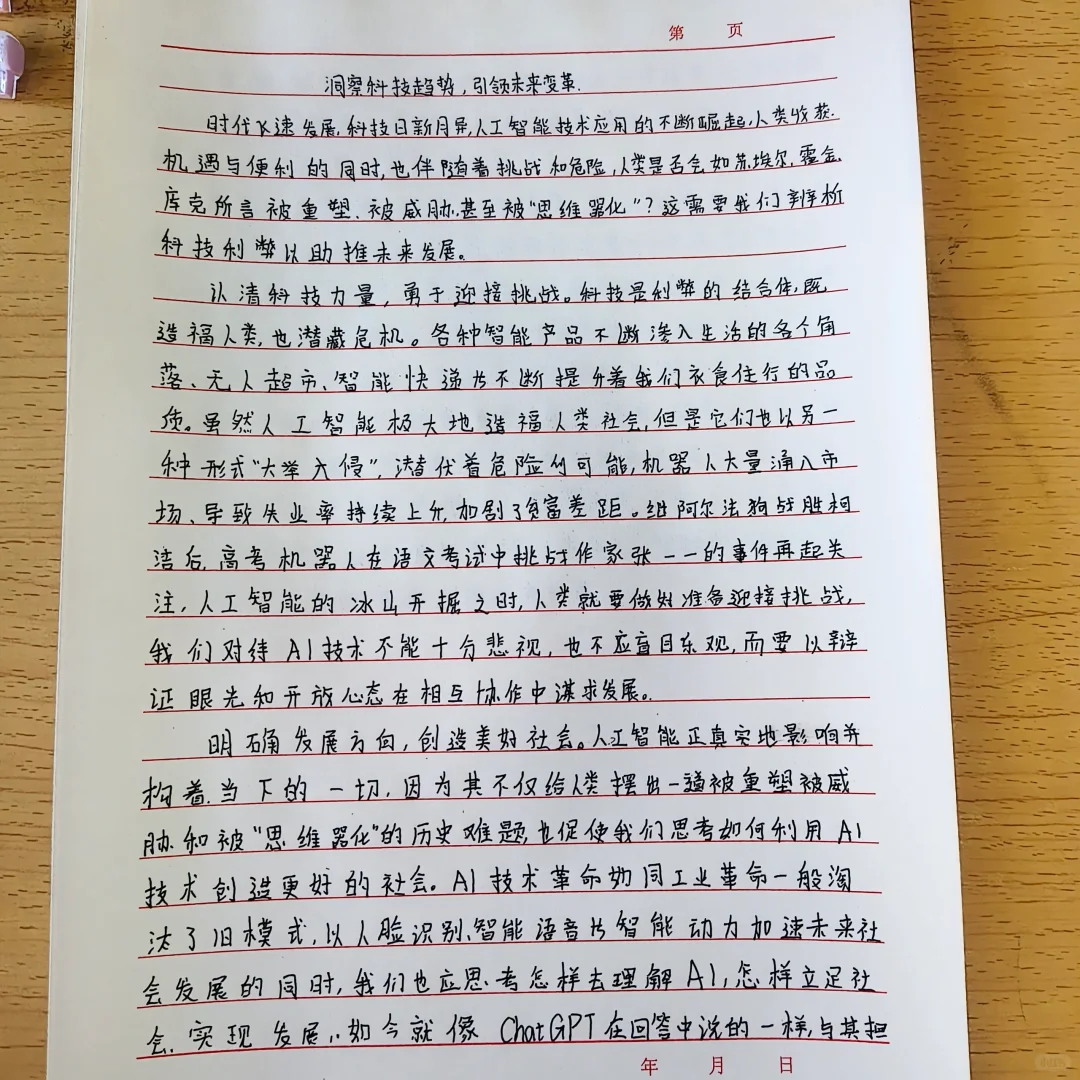 第 页
洞察科技趋势,引领未来变革.
时代飞速发展,科技日新月异,人工智能技术应用的不断崛起,人类收获
机遇与便利的同时,也伴随着挑战和危险,人类是否会如苏埃尔.霍金.
库克所言被重塑、被威胁.甚至被“思维器化”?这需要我们辨析
科技利弊以助推未来发展。
认清科技力量,勇于迎接挑战。科技是利弊的结合体,既
造福人类,也潜藏危机。各种智能产品不断渗入生活的各个角
落、无人超市、智能快递片不断提升着我们衣食住行的品
质。虽然人工智能极大地造福人类社会,但是它们也以另一
种形式“大举入侵”,潜伏着危险的可能,机器人大量涌入市
场、导致失业率持续上升,加剧了贫富差距。继阿尔法狗战胜柯
洁后,高考机器人在语文考试中挑战作家张一一的事件再起关
注,人工智能的冰山开掘之时,人类就要做好准备迎接挑战,
我们对待AI技术不能十分悲视,也不应盲目乐观,而要以辩
证眼光和开放心态在相互协作中谋求发展。
明确发展方向,创造美好社会。人工智能正真实地影响并
构着.当下的一切,因为其不仅给人类摆出一道被重塑被威
胁和被“思维器化”的历史难题,也促使我们思考如何利用AI
技术创造更好的社会。AI技术革命如同工业革命一般淘
汰了旧模式,以人脸识别、智能语音片智能动力加速未来社
会发展的同时,我们也应思考怎样去理解AI,怎样立足社
会.实现发展,.如今就像ChatGPT在回答中说的一样,与其担
年 月 日